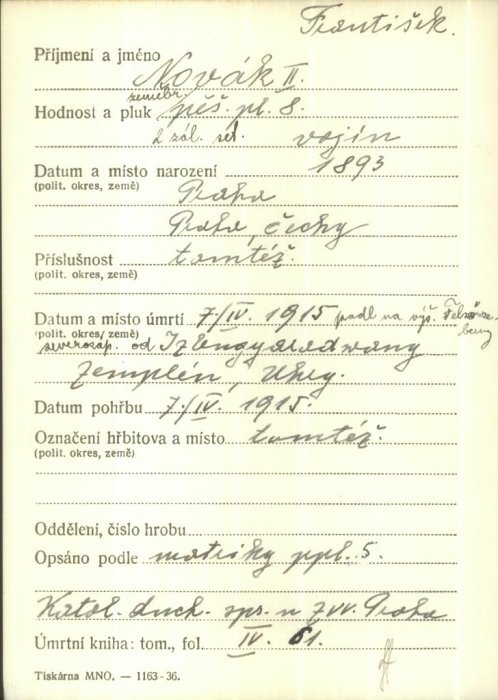 František.
Příjmení a jméno
Novák II.
zeměbr.
Hodnost a pluk pěš. pl. 8.
2 zál. set. vojín
Datum a místo narození 1893
(polit. okres, země) Praha
Praha, Čechy
Příslušnost tamtéž.
(polit. okres, země)
Datum a místo úmrtí 7/IV. 1915 padl na výš.
(polit. okres, země) severozáp. od
Zemplén, Uhry.
Datum pohřbu 7/IV. 1915.
Označení hřbitova a místo tamtéž.
(polit. okres, země)
Oddělení, číslo hrobu
Opsáno podle matriky ppl. 5.
Katol. duch. spr. u ZVV. Praha
Úmrtní kniha: tom., fol. IV. 61.
Tiskárna MNO. — 1163-36.